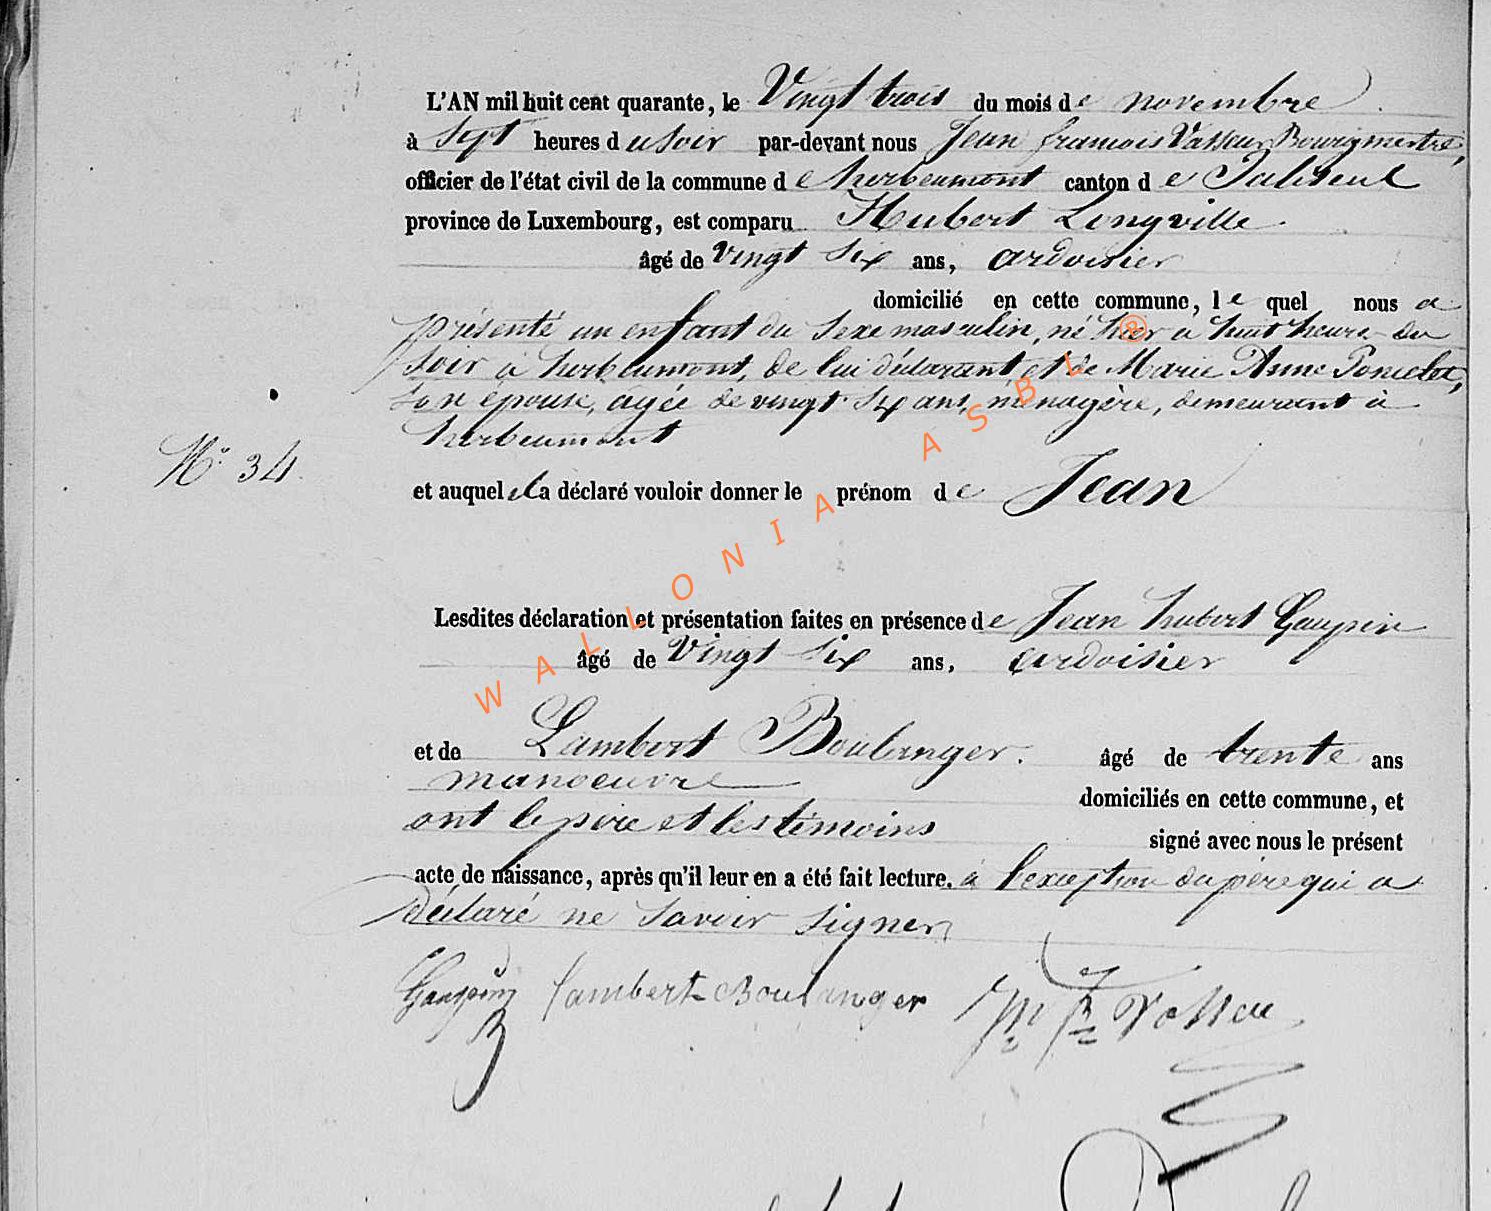 L'AN mil huit cent quarante, le Vingt trois du mois de novembre
à Sept heures du Soir par-devant nous Jean francois Vasseur Bourgmestre,
officier de l'état civil de la commune de herbeumont canton de Paliseul
province de Luxembourg, est comparu Hubert Longville
âgé de vingt Six ans, ardoisier
domicilié en cette commune, le quel nous a
présenté un enfant du Sexe masculin, né hier à huit heures du
Soir à herbeumont, de lui déclarant et de Marie Anne Poncelet,
Son épouse, agée de vingt Six ans, ménagère, demeurant à
herbeumont
Nº 34.
et auquel il a déclaré vouloir donner le prénom de Jean
Lesdites déclaration et présentation faites en présence de Jean hubert Gaupin
âgé de Vingt Six ans, ardoisier
et de Lambert Boulanger. âgé de trente ans
manoeuvre domiciliés en cette commune, et
ont le père et les témoins signé avec nous le présent
acte de naissance, après qu'il leur en a été fait lecture. à l'exception du père qui a
déclaré ne Savoir Signer
Gaupin Lambert Boulanger
WALLONIA ASBL ®